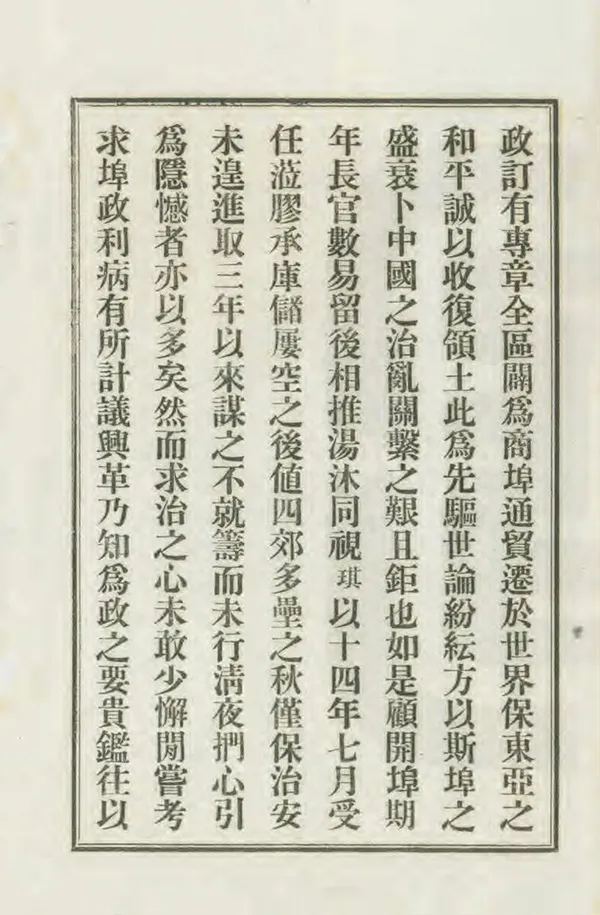 政訂有專章全區闢爲商埠通貿遷於世界保東亞之
和平誠以收復領土此爲先驅世論紛紜方以斯埠之
盛衰卜中國之治亂關繫之艱且鉅也如是顧開埠期
年長官數易留後相推湯沐同視琪以十四年七月受
任蒞膠承庫儲屢空之後值四郊多壘之秋僅保治安
未遑進取三年以來謀之不就籌而未行清夜捫心引
爲隱憾者亦以多矣然而求治之心未敢少懈閒嘗考
求埠政利病有所計議興革乃知爲政之要貴鑑往以